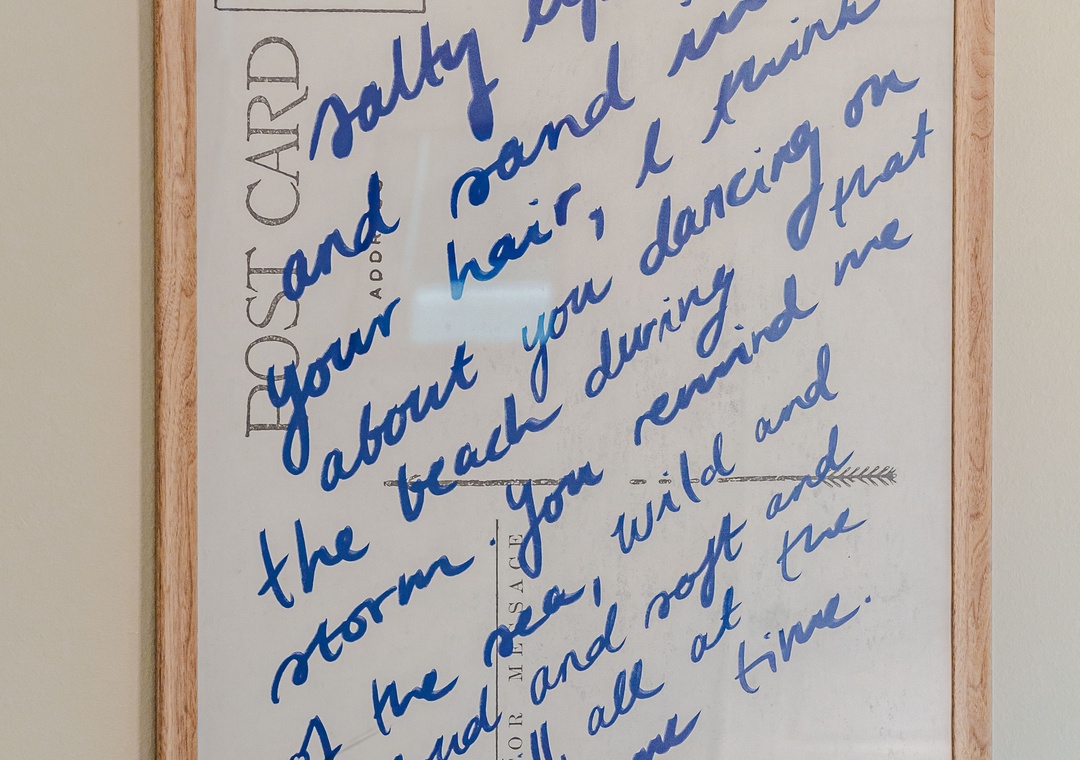 POST CARD
salty
and sand in
your hair, I think
about you dancing on
the beach during that
storm. You remind me
of the sea, wild and
and soft and
all at the
time.
FOR MESSAGE